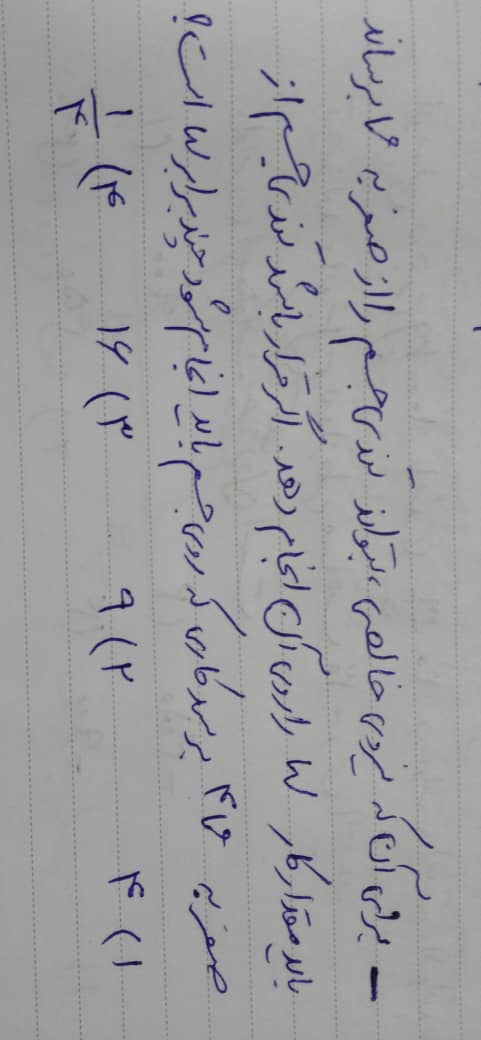 - برای آن که نیروی خالصی، بتواند تندی جسم را از صفر به v برساند
باید مقدار کار w را روی آن انجام دهد. اگر قرار باشد تندی جسم از
صفر به ۴v برسد کاری که روی جسم باید انجام شود چند برابر w است؟
۱) ۴ ۲) ۹ ۳) ۱۶ ۴) ۱/۴